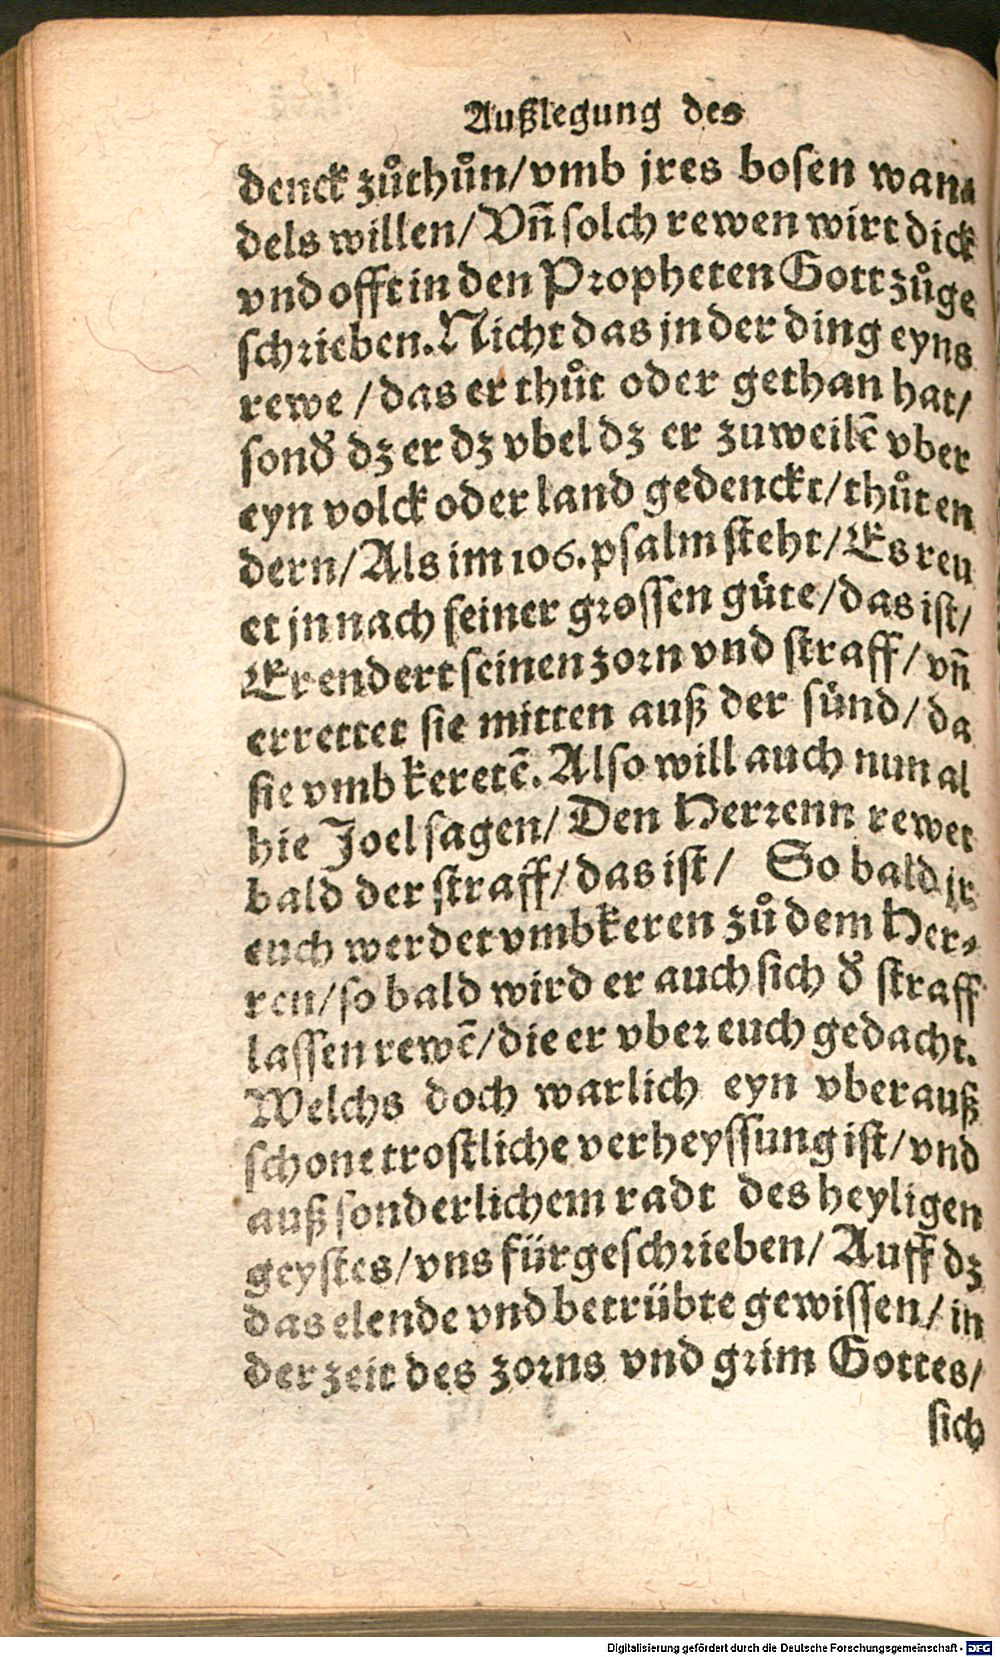 Außlegung des
denck zůthůn/vmb jres bosen wan⸗
dels willen/Vñ solch rewen wirt dick
vnd offt in den Propheten Gott zůge
schrieben. Nicht das jn der ding eyns
rewe / das er thůt oder gethan hat/
sonđ dz er dz vbel dz er zuweilē vber
eyn volck oder land gedenckt/thůt en
dern/Als im 106. psalm steht/Es reu
et jn nach seiner grossen güte/das ist/
Er endert seinen zorn vnd straff/vñ
errettet sie mitten auß der sünd/da
sie vmbkeretē. Also will auch nun al
hie Joel sagen/Den Herrenn rewet
bald der straff/das ist/ So bald jr
euch werdet vmbkeren zů dem Her⸗
ren/so bald wird er auch sich đ straff
lassen rewē/die er vber euch gedacht.
Welchs doch warlich eyn vberauß
schone trostliche verheyssung ist/vnd
auß sonderlichem radt des heyligen
geystes/vns fürgeschrieben/Auff dz
das elende vnd betrübte gewissen/in
der zeit des zorns vnd grim Gottes/
sich
Digitalisierung gefördert durch die Deutsche Forschungsgemeinschaft - DFG